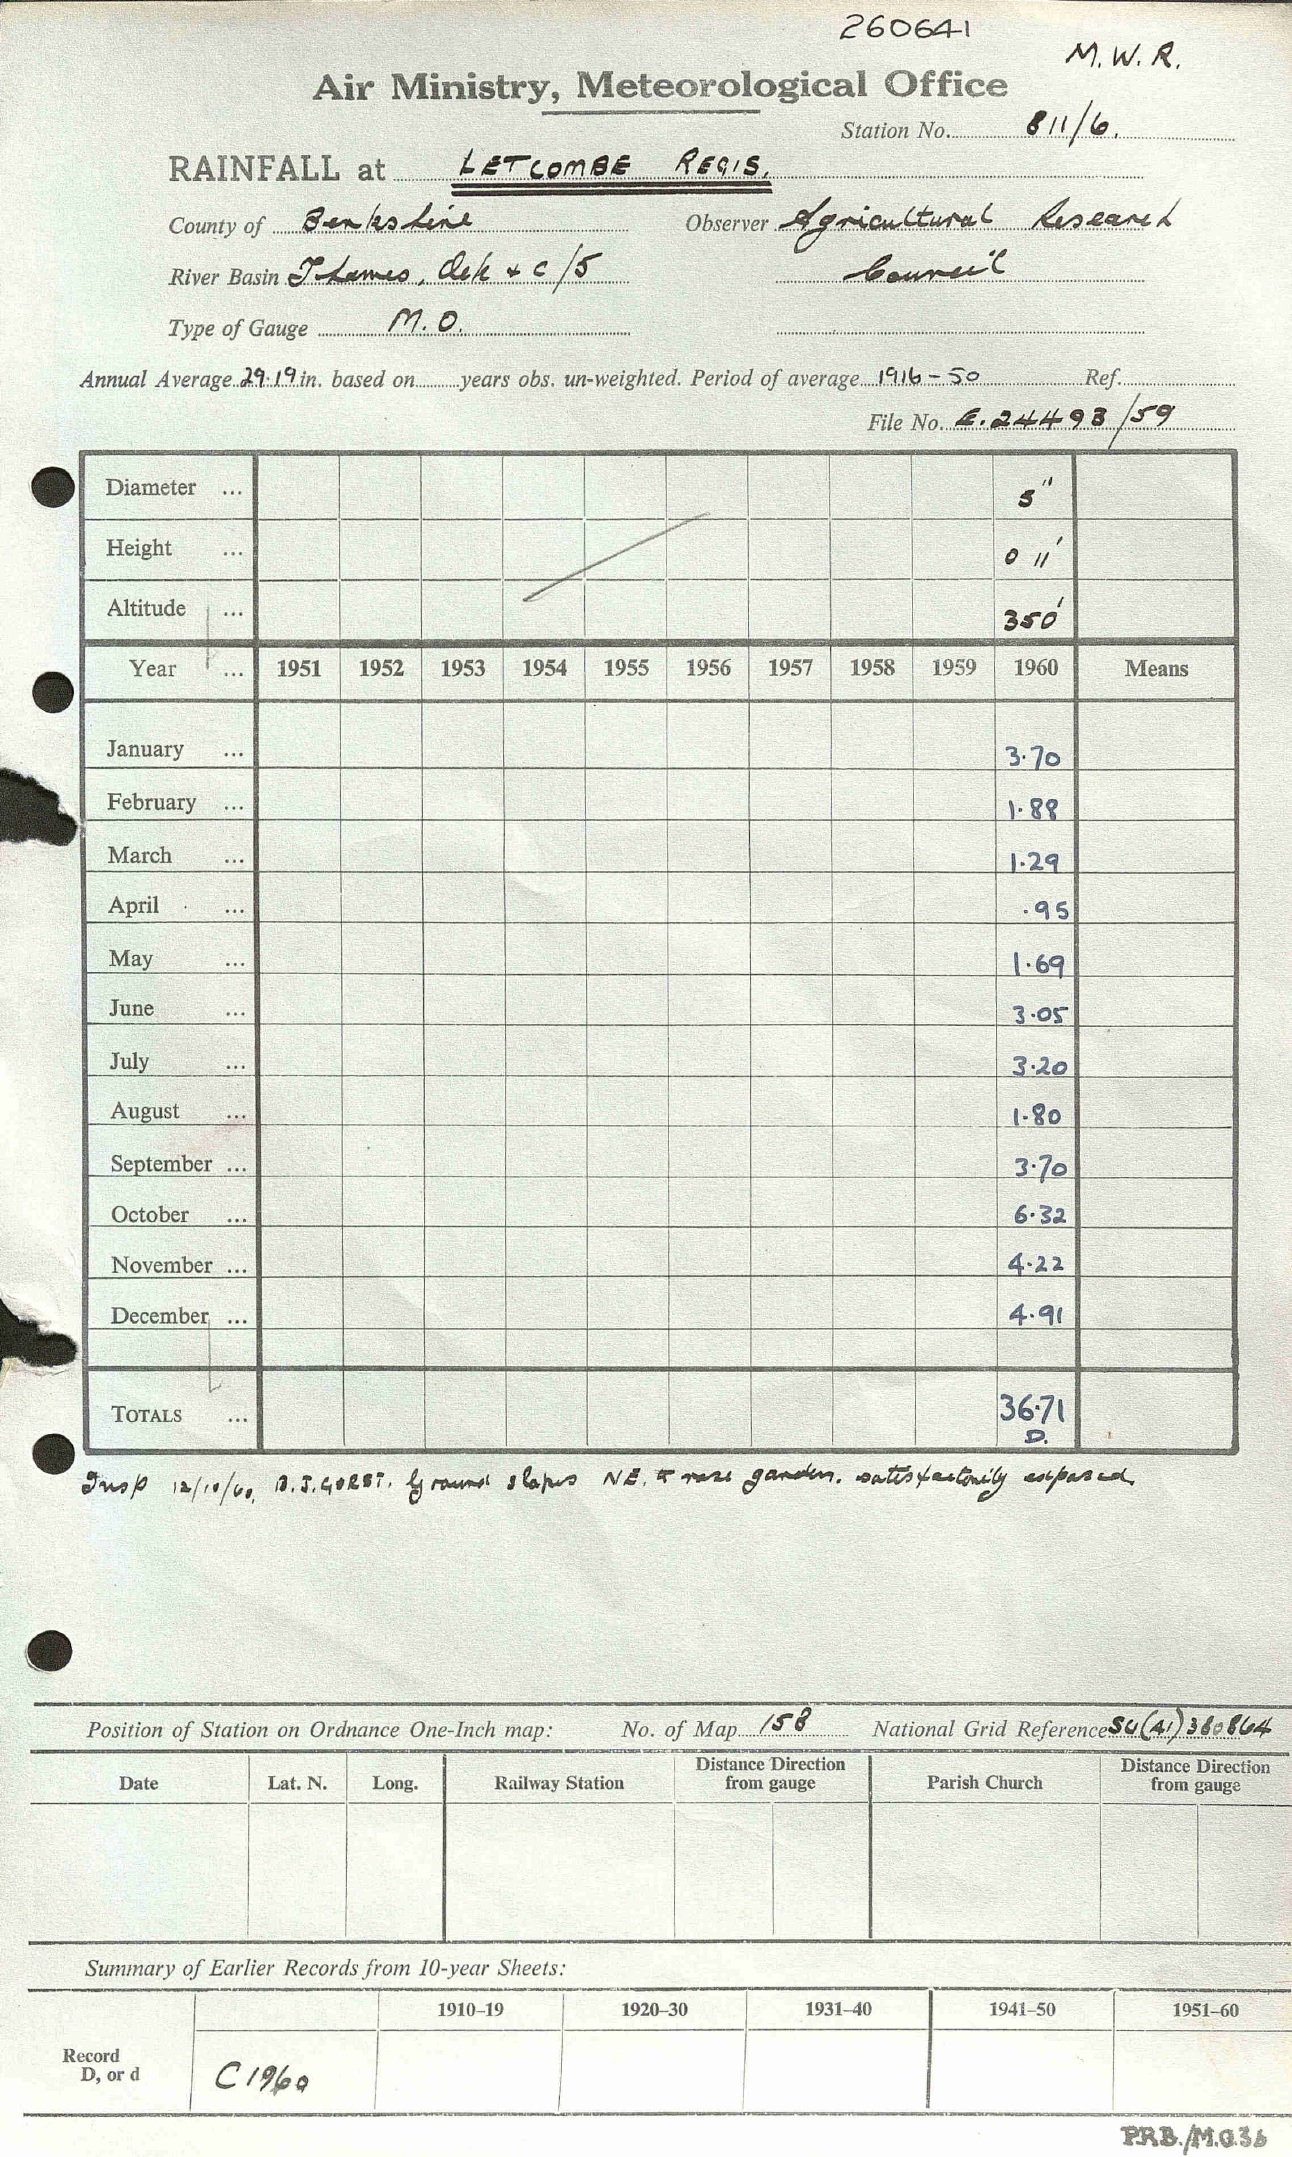 260641
M.W.R.
Air Ministry, Meteorological Office
Station No. 811/6.
RAINFALL at LETCOMBE REGIS.
County of Berkshire Observer Agricultural Research
River Basin Thames, Ock & C/5 Council
Type of Gauge M.O.
Annual Average 29.19 in. based on years obs. un-weighted. Period of average 1916-50 Ref.
File No. E.24493/59
Diameter ... 5"
Height ... 0 11'
Altitude ... 350'
Year ... 1951 1952 1953 1954 1955 1956 1957 1958 1959 1960 Means
January ... 3.70
February ... 1.88
March ... 1.29
April ... .95
May ... 1.69
June ... 3.05
July ... 3.20
August ... 1.80
September ... 3.70
October ... 6.32
November ... 4.22
December ... 4.91
TOTALS ... 36.71
D.
Insp 12/10/60. B.J. GORST. Ground slopes NE. rose garden. satisfactorily exposed.
Position of Station on Ordnance One-Inch map: No. of Map 158 National Grid Reference SU(41)380864
Date Lat. N. Long. Railway Station Distance Direction from gauge Parish Church Distance Direction from gauge
Summary of Earlier Records from 10-year Sheets:
1910–19 1920–30 1931–40 1941–50 1951–60
Record
D, or d C1960
P.R.B./M.O.36